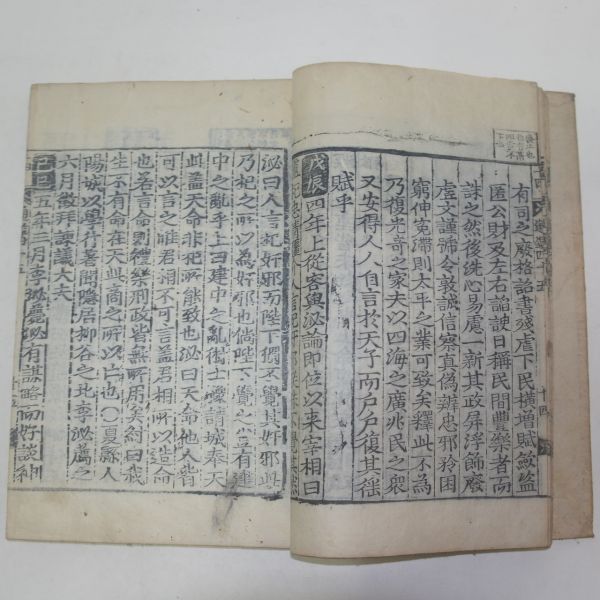 有司之廢格詔書殘虐下民橫增賦斂盜
匿公財及左右諂諛日稱民間豐樂者而
誅之然後洗心易慮一新其政屏浮飾廢
虛文謹號令敦誠信察真偽辨忠邪矜困
窮伸冤滯則太平之業可致矣釋此不為
乃復光奇之家夫以四海之廣兆民之衆
又安得人人自言於天子而戶戶復其徭
賦乎
戊辰四年上從容與泌論即位以來宰相曰
人言杞奸邪朕殊不覺其然
泌曰人言杞奸邪而陛下獨不覺其奸邪此
乃杞之所以為奸邪也倘陛下覺之豈有建
中之亂乎上曰建中之亂術士豫請城奉天
此蓋天命非杞所能致也泌曰天命他人皆
可以言之唯君相不可言蓋君相所以造命
也若言命則禮樂刑政皆無所用矣紂曰我
生不有命在天此商之所以亡也○夏縣人
陽城以學行著聞隱居柳谷之北李泌薦之
六月徵拜諫議大夫
己巳五年三月李泌薨泌有謀略而好談神